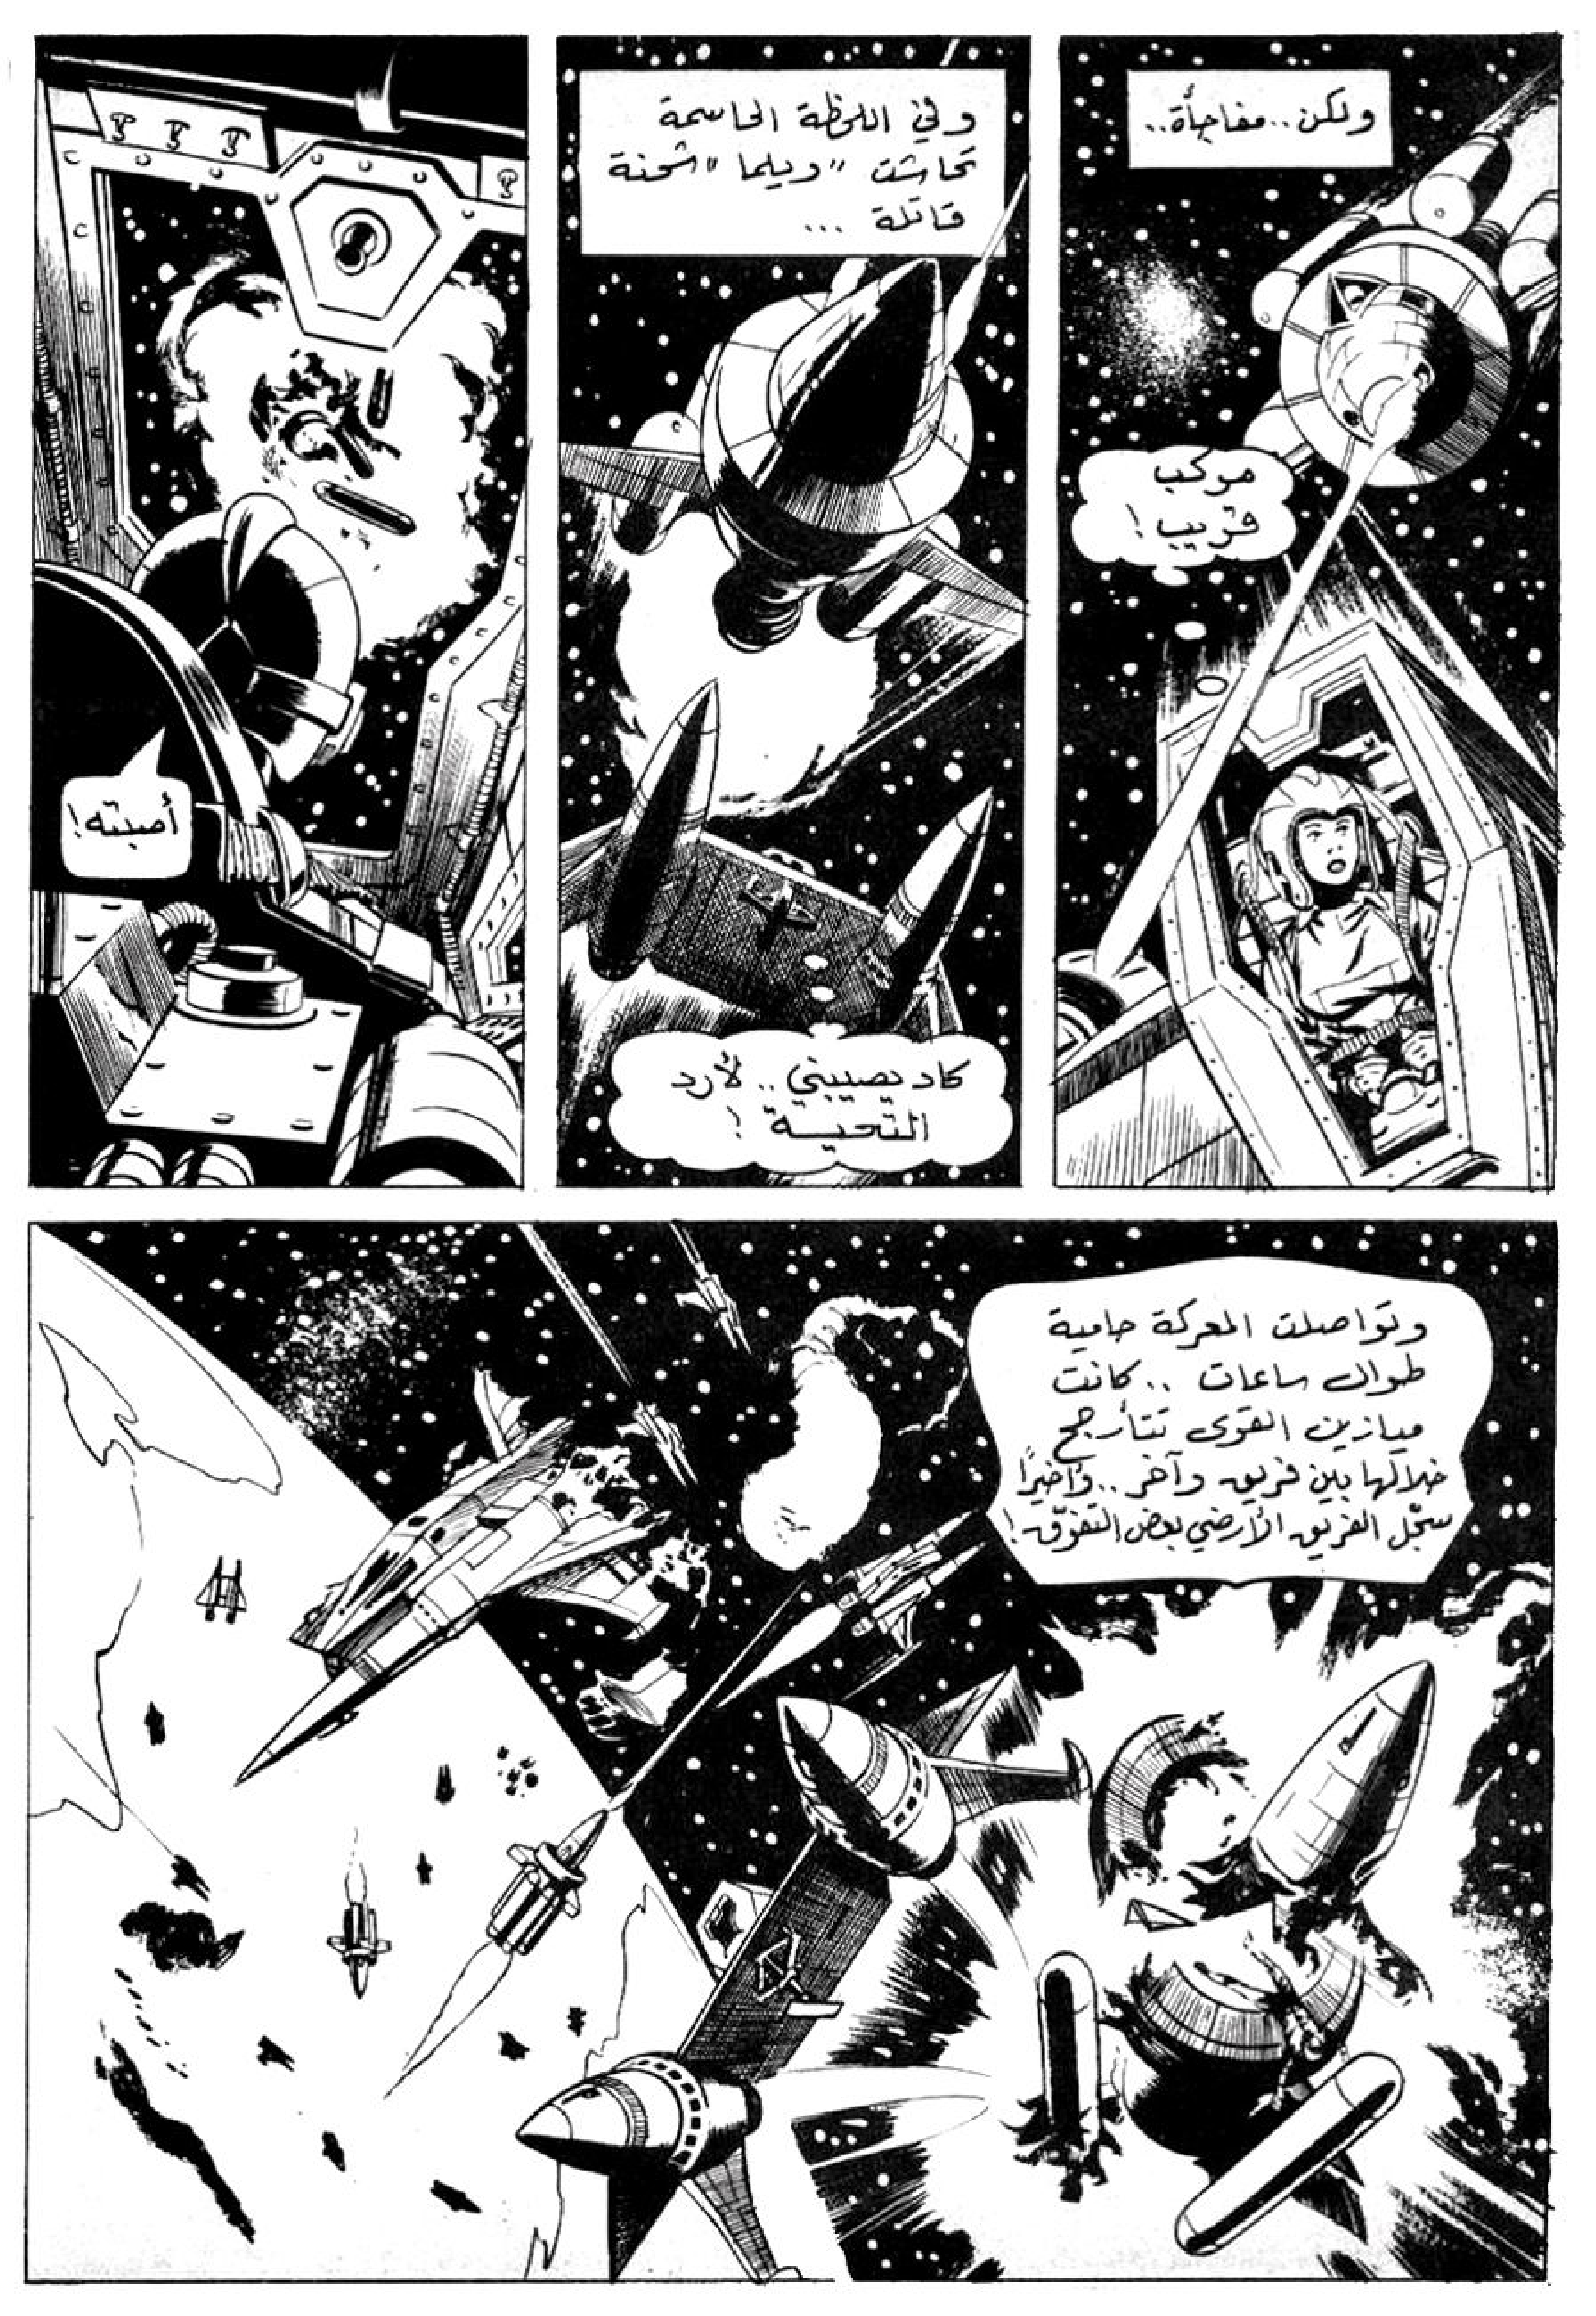 ولكن.. مفاجأة..
مركب
قريب!
وفي اللحظة الحاسمة
تحاشت "ويلما" شحنة
قاتلة ...
كاد يصيبني.. لأرد
التحيـة!
أصبته!
وتواصلت المعركة حامية
طوال ساعات .. كانت
ميازين القوى تتأرجح
خلالها بين فريق وآخر.. وأخيرًا
سجّل الفريق الأرضي بعض التفوّق!